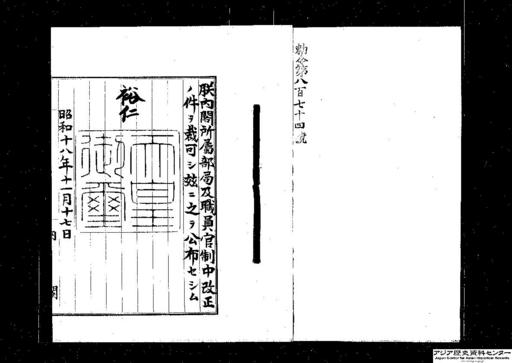 勅令第八百七十四號
朕內閣所屬部局及職員官制中改正
ノ件ヲ裁可シ玆ニ之ヲ公布セシム
裕仁
天皇御璽
昭和十八年十一月十七日
內閣
アジア歴史資料センター
Japan Center for Asian Historical Records